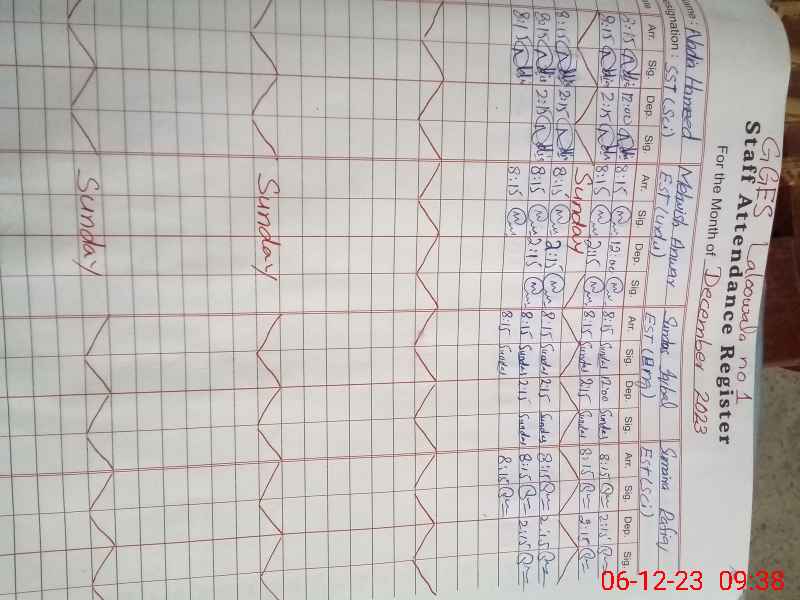 GGES Laloowala no 1
Staff Attendance Register
For the Month of December 2023
Name: Nadia Hameed Mehwish Anwar Sundas Iqbal Samina Rafiq
Designation: SST (Sci) EST (Urdu) EST (Eng) EST (Sci)
Arr. Sig. Dep. Sig. Arr. Sig. Dep. Sig. Arr. Sig. Dep. Sig. Arr. Sig. Dep. Sig.
8:15 12:00 8:15 12:00 8:15 Sundas 12:00 Sundas 8:15 2:15
8:15 2:15 8:15 2:15 8:15 Sundas 2:15 Sundas 8:15 2:15
Sunday
8:15 2:15 8:15 2:15 8:15 Sundas 2:15 Sundas 8:15 2:15
8:15 2:15 8:15 2:15 8:15 Sundas 2:15 Sundas 8:15 2:15
8:15 8:15 8:15 Sundas 8:15
Sunday
Sunday
06-12-23 09:38